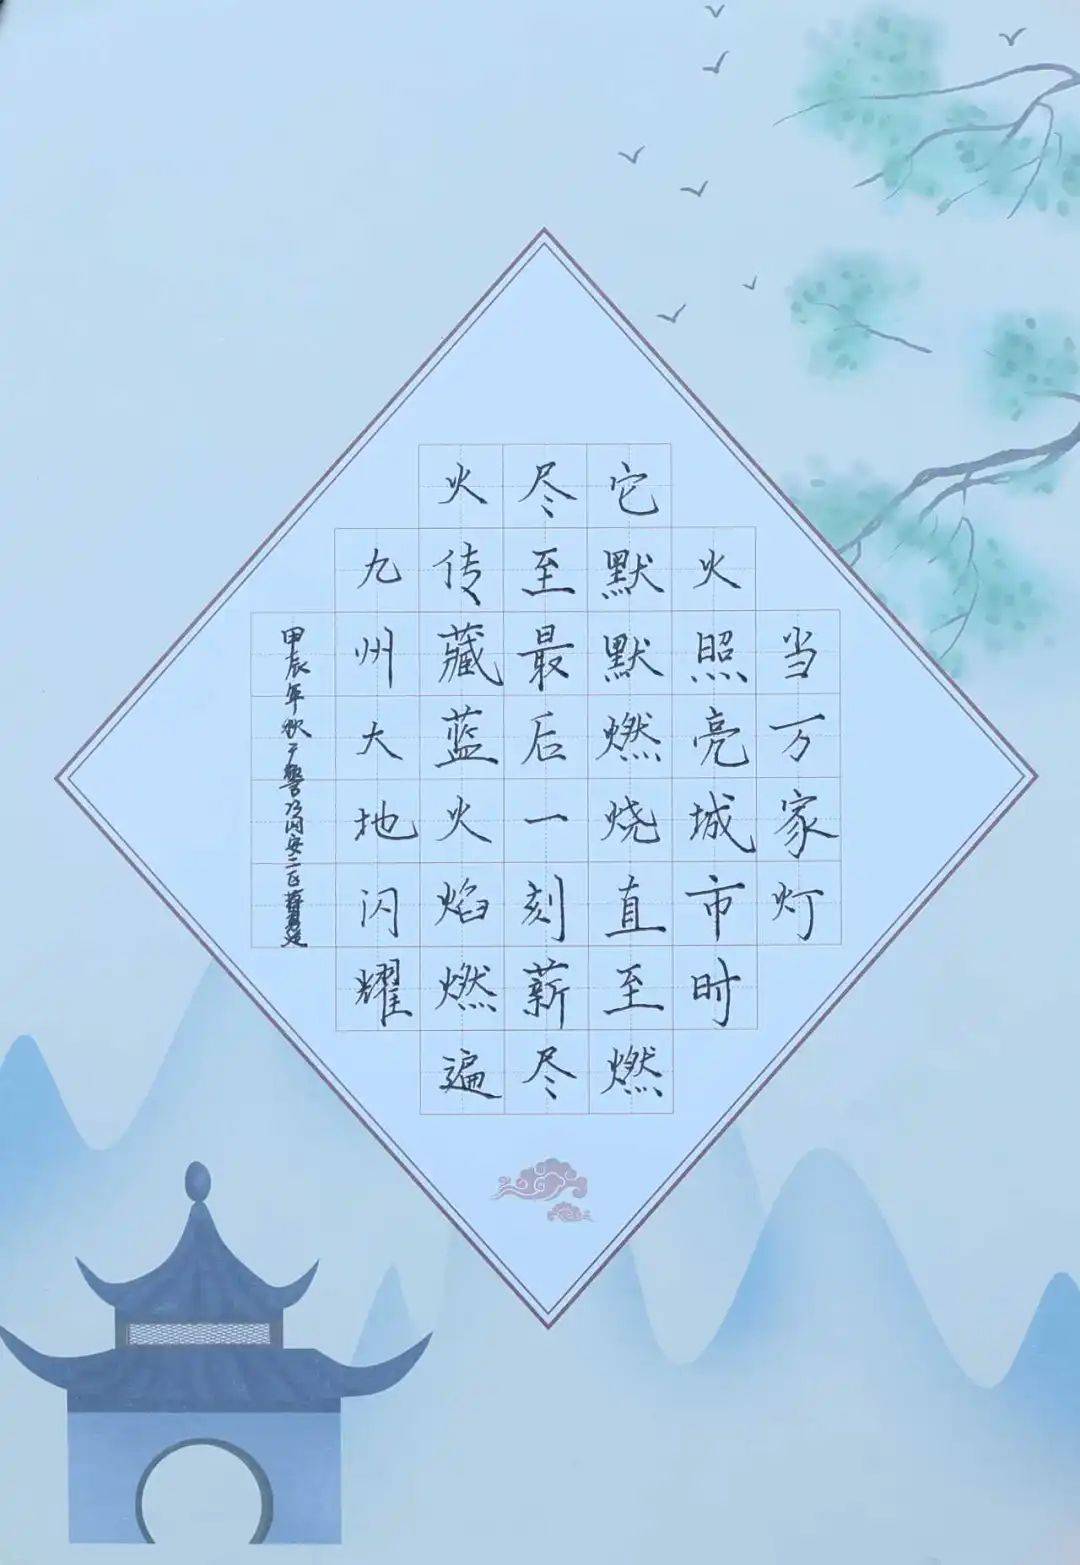 当万家灯
火照亮城市时
它默默燃烧直至燃
尽至最后一刻薪尽
火传藏蓝火焰燃遍
九州大地闪耀
甲辰年秋